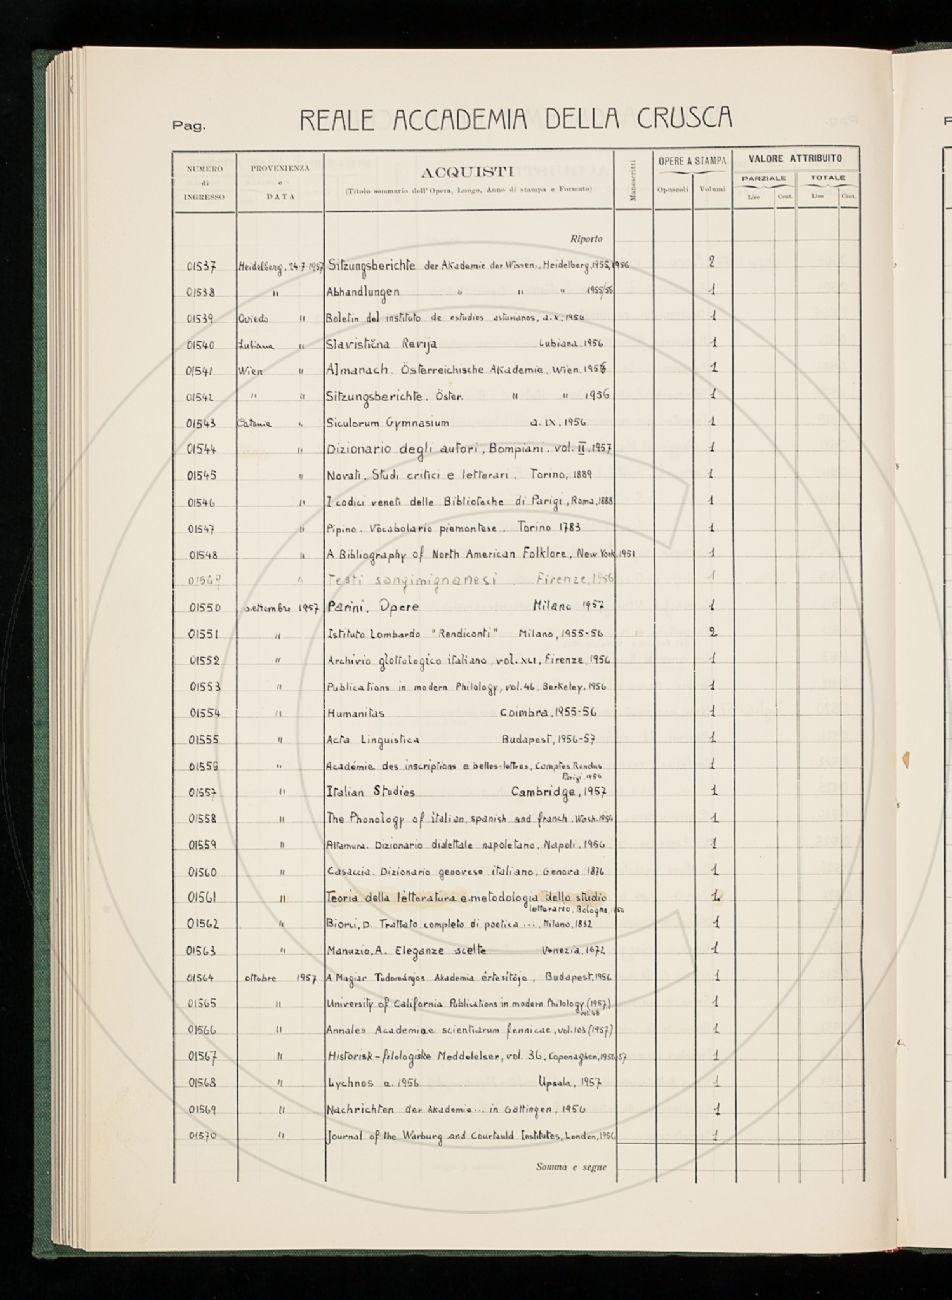 Pag. REALE ACCADEMIA DELLA CRUSCA
NUMERO di INGRESSO PROVENIENZA e DATA ACQUISTI (Titolo sommario dell'Opera, Luogo, Anno di stampa e Formato) Manoscritti OPERE A STAMPA Opuscoli Volumi VALORE ATTRIBUITO PARZIALE Lire Cent. TOTALE Lire Cent.
Riporto
01537 Heidelberg, 24.7.1957 Sitzungsberichte der Akademie der Wissen., Heidelberg, 1955, 1956 2
01538 " Abhandlungen " " " 1955/56 1
01539 Oviedo " Boletin del instituto de estudios asturianos, a. x, 1956 1
01540 Lubiana " Slavistična Revija Lubiana, 1956 1
01541 Wien " Almanach. Österreichische Akademie. Wien, 1956 1
01542 " " Sitzungsberichte. Öster. " " 1956 1
01543 Catania " Siculorum Gymnasium a. IX, 1956 1
01544 " Dizionario degli autori, Bompiani. vol. II, 1957 1
01545 " Novati. Studi critici e letterari. Torino, 1889 1
01546 " I codici veneti delle Biblioteche di Parigi, Roma, 1888 1
01547 " Pipino. Vocabolario piemontese. Torino 1783 1
01548 " A Bibliography of North American Folklore, New York, 1951 1
01549 " Testi sangimignanesi Firenze, 1956 1
01550 settembre 1957 Parini. Opere Milano 1957 1
01551 " Istituto Lombardo "Rendiconti" Milano, 1955-56 2
01552 " Archivio glottologico italiano vol. XLI, Firenze, 1956 1
01553 " Publications in modern Philology, vol. 46, Berkeley, 1956 1
01554 " Humanitas Coimbra, 1955-56 1
01555 " Acta Linguistica Budapest, 1956-57 1
01556 " Académie des inscriptions e belles-lettres, Comptes Rendus 1
Parigi 1956
01557 " Italian Studies Cambridge, 1957 1
01558 " The Phonology of italian, spanish and french. Wash. 1956 1
01559 " Altamura. Dizionario dialettale napoletano, Napoli, 1956 1
01560 " Casaccia. Dizionario genovese italiano, Genova 1876 1
01561 " Teoria della letteratura e metodologia dello studio 1
letterario, Bologna
01562 " Biorci, D. Trattato completo di poetica ..., Milano, 1832 1
01563 " Manuzio, A. Eleganze scelte Venezia, 1672 1
01564 ottobre 1957 A Magiar Tudományos Akademia értesitöje, Budapest, 1956 1
01565 " University of California Publications in modern Philology (1957) 1
vol. 48
01566 " Annales Academiae scientiarum fennicae, vol. 103 (1957) 1
01567 " Historisk-filologiske Meddelelser, vol. 36, Copenaghen, 1956/57 1
01568 " Lychnos a. 1956 Upsala, 1957 1
01569 " Nachrichten der Akademie ... in Göttingen, 1956 1
01570 " Journal of the Warburg and Courtauld Institutes, London, 1956 1
Somma e segue